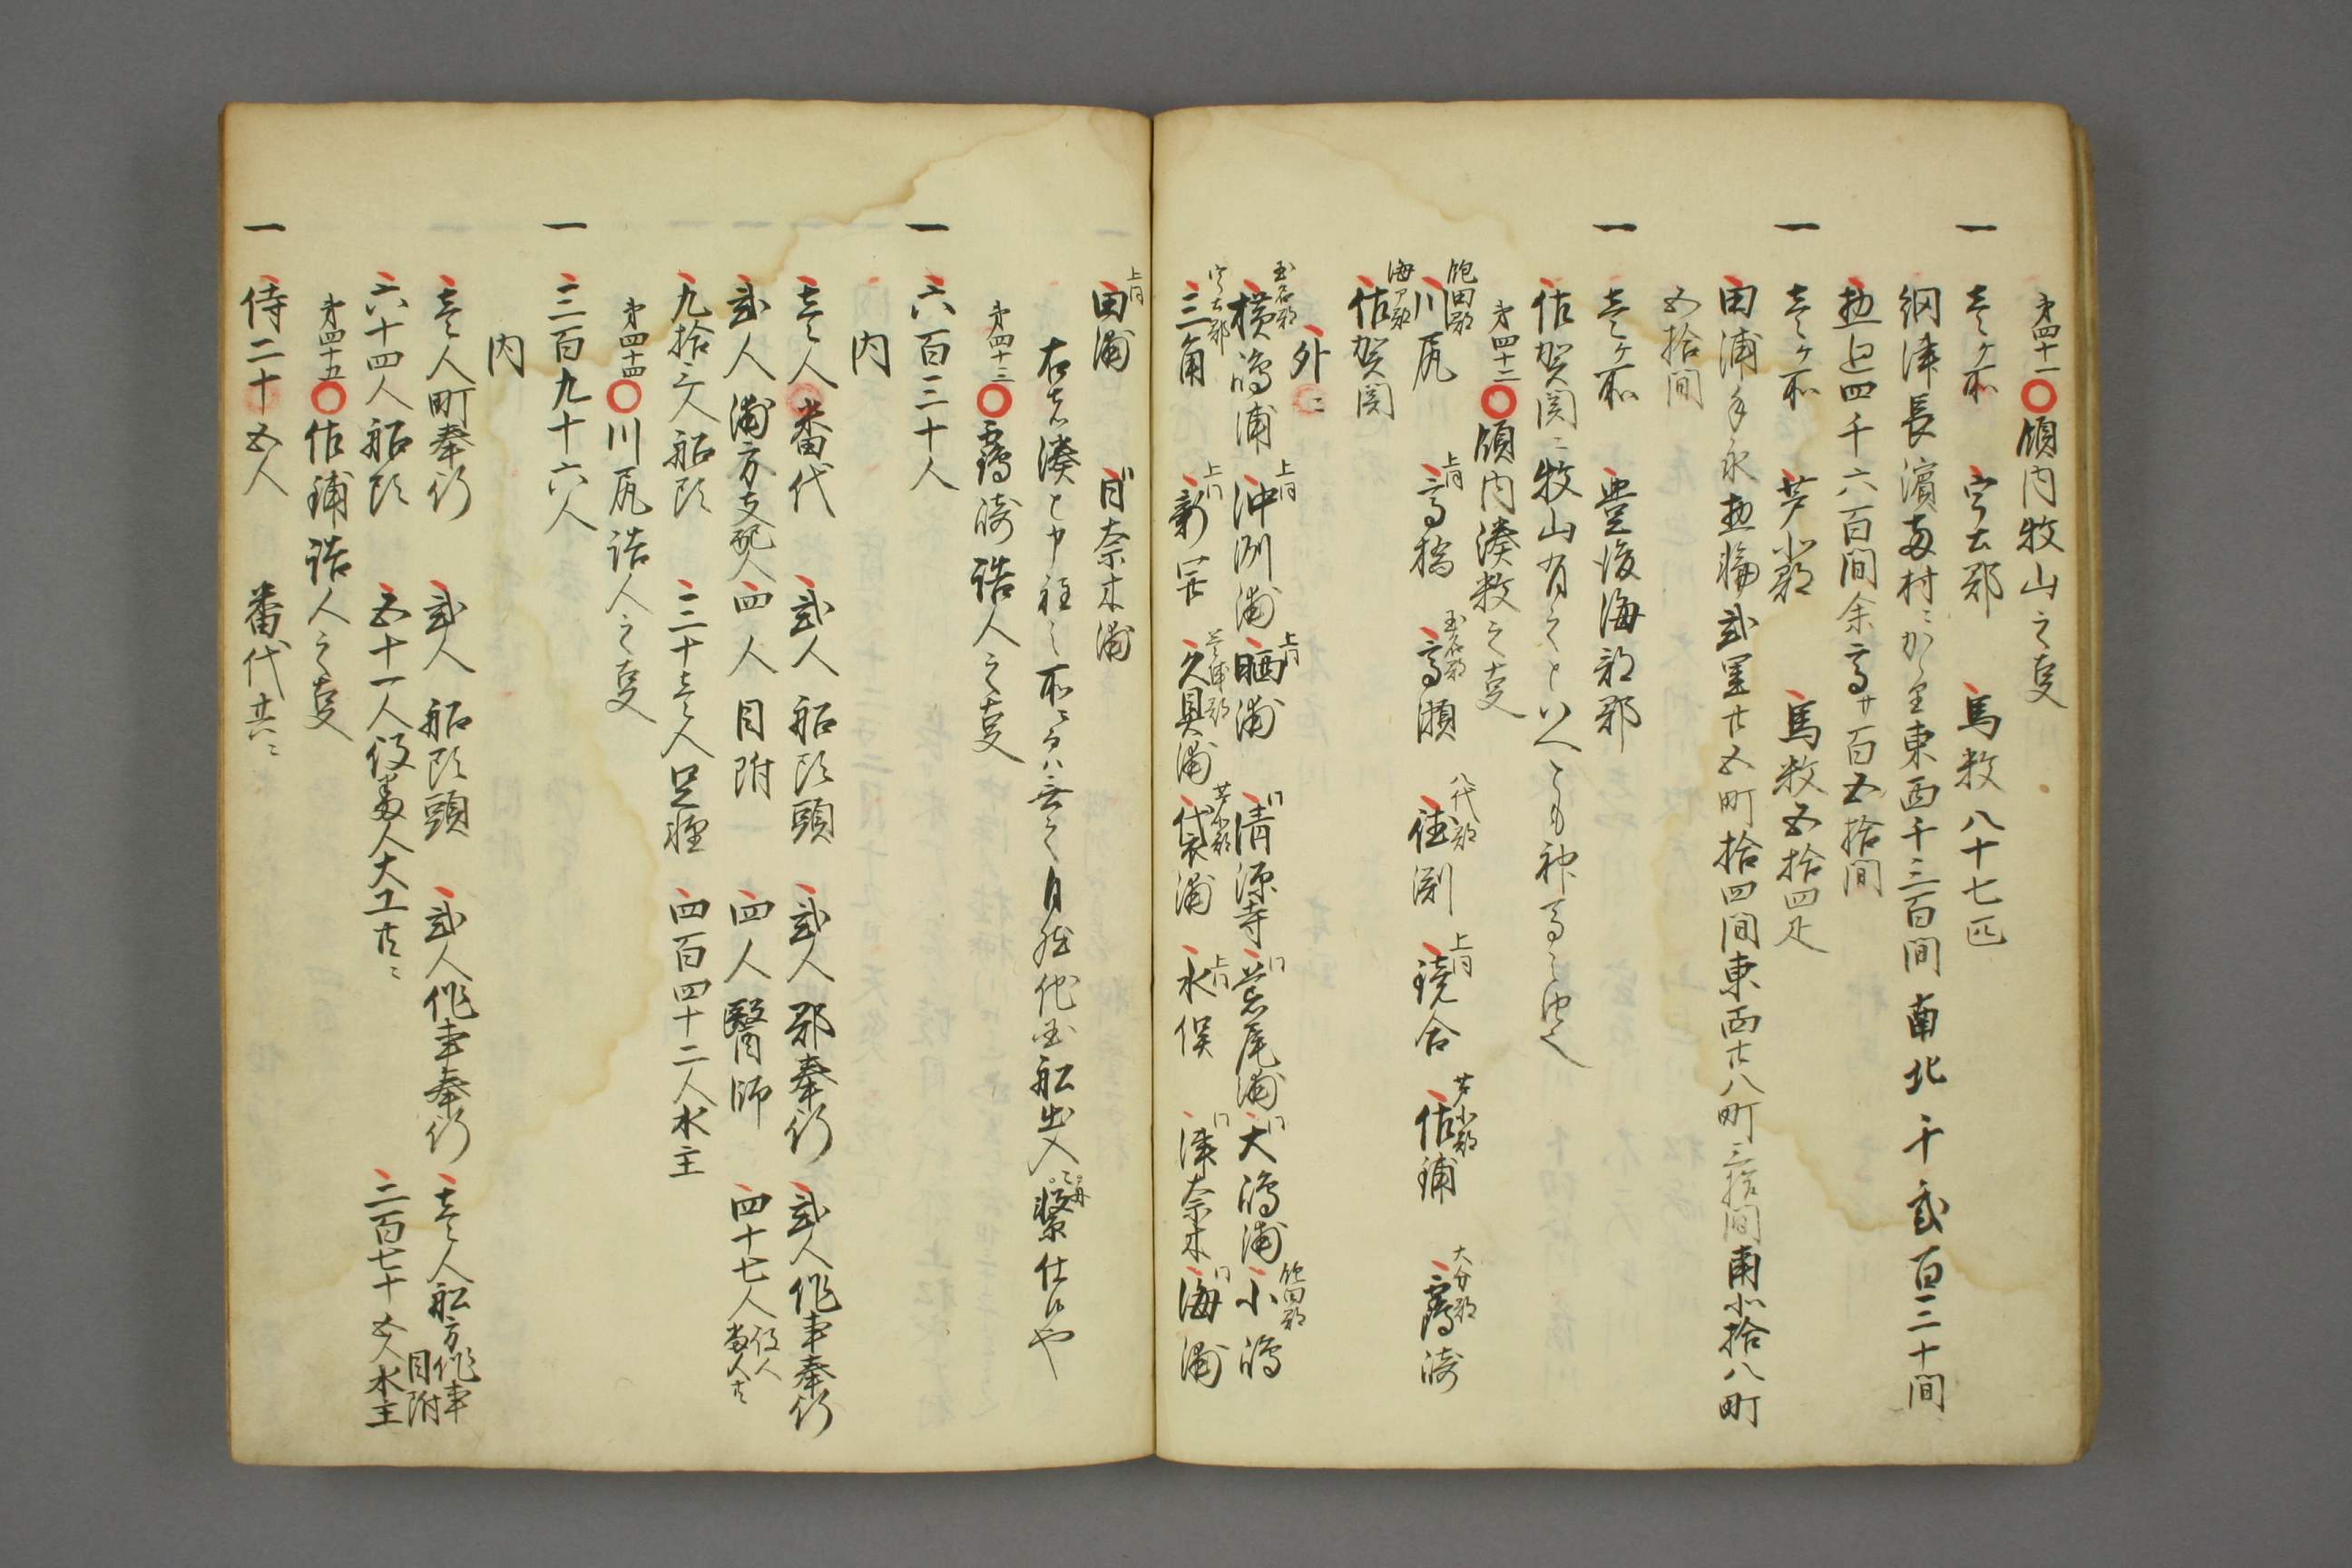 第四十一〇領内牧山之事
一 壱ヶ所 宇土郡 馬数八十七匹
網津長濱両村ニかゝる東西千三百間南北千弐百三十間
惣廻四千六百間余高サ百五拾間
一 壱ヶ所 芦北郡 馬数五拾四疋
田浦手永惣輪弐里廿五町拾四間東西廿八町三拾間南北拾八町
五拾間
一 壱ヶ所 豊後海部郡
佐賀関ニ牧山有之といへとも神馬之由
第四十二〇領内湊数之事
飽田郡川尻 上同高橋 玉名郡高瀬 八代郡徳渕 上同鏡合 芦北郡佐鋪 大分郡鶴崎
海ア郡佐賀関
外ニ
玉名郡横嶋浦 上同沖洲浦 上同晒浦 同清源寺 同荒尾浦 同大嶋浦 飽田郡小嶋
宇土郡三角 上同新管 芦北郡袋浦 上同水俣 同津奈木 同海浦
上同田浦 同日奈木浦
右者湊と申程之所ニ而ハ無之自然他国船出入繋仕候や
第四十三〇鶴崎詰人之事
一 六百三十人
内
壱人番代 弐人船頭頭 弐人郡奉行 弐人作事奉行
弐人浦方支配人 四人目附 四人醫師 四十七人役人
九拾三人船頭 三十壱人足軽 四百四十二人水主
第四十四〇川尻詰人之事
一 三百九十六人
内
壱人町奉行 弐人船頭頭 弐人作事奉行 壱人船方作事目附
六十四人船頭 五十一人役人大工共ニ 二百七十五人水主
第四十五〇佐鋪詰人之事
一 侍二十五人 番代共ニ